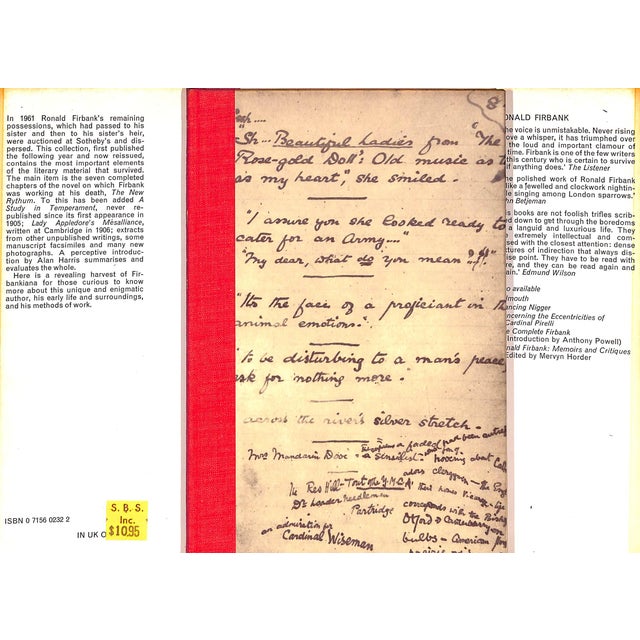 In 1961 Ronald Firbank's remaining
possessions, which had passed to his
sister and then to his sister's heir,
were auctioned at Sotheby's and dis-
persed. This collection, first published
the following year and now reissued,
contains the most important elements
of the literary material that survived.
The main item is the seven completed
chapters of the novel on which Firbank
was working at his death, The New
Rythum. To this has been added A
Study in Temperament, never re-
published since its first appearance in
1905; Lady Appledore's Mésalliance,
written at Cambridge in 1906; extracts
from other unpublished writings, some
manuscript facsimiles and many new
photographs. A perceptive introduction
by Alan Harris summarises and
evaluates the whole.
Here is a revealing harvest of Fir-
bankiana for those curious to know
more about this unique and enigmatic
author, his early life and surroundings,
and his methods of work.
ISBN 0 7156 0232 2
IN UK O
S. B. S.
Inc.
$10.95
8
"Sh... Beautiful Ladies from "The
Rose-gold Doll": Old music as
as my heart", she smiled.
"I assure you she looked ready to
cater for an Army....
"My dear, what do you mean ?!!"
"Its the face of a proficiant in th
animal emotions."
"to be disturbing to a man's peace
ask for nothing more."
across the river's silver stretch.
Mrs Mandarin Dove - a sensualist.
The Red Hill
Dr Lander Needleman
Partridge
an admiration for
Cardinal Wiseman
corresponds with the
Oxford &
bulbs - American
ONALD FIRBANK
he voice is unmistakable. Never rising
ove a whisper, it has triumphed over
the loud and important clamour of
time. Firbank is one of the few writers
this century who is certain to survive
if anything does.' The Listener
he polished work of Ronald Firbank
like a jewelled and clockwork nightin-
ale singing among London sparrows.'
hn Betjeman
is books are not foolish trifles scrib-
ed down to get through the boredoms
a languid and luxurious life. They
e extremely intellectual and com-
sed with the closest attention: dense
ctures of indirection that always dis-
ise point. They have to be read with
re, and they can be read again and
ain.' Edmund Wilson
so available
lmouth
ancing Nigger
oncerning the Eccentricities of
Cardinal Pirelli
e Complete Firbank
(Introduction by Anthony Powell)
nald Firbank: Memoirs and Critiques
Edited by Mervyn Horder